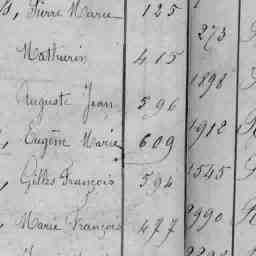 Pierre Marie 125
273
Mathurin 415
1898
Auguste Jean 596
Eugène Marie 609 1912
Gilles François 594 1545
Marie François 477 9990